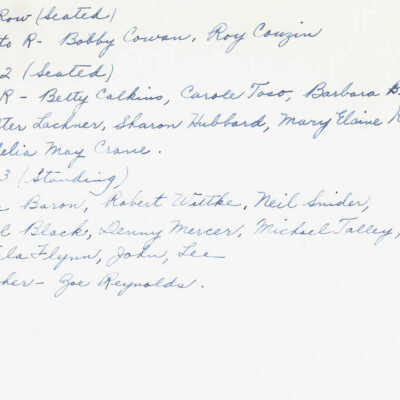 Row (Seated)
to R- Bobby Cowan, Roy Couzin
2 (Seated)
R - Betty Calkins, Carole Toso, Barbara
Lachner, Sharon Hubbard, Mary Elaine
elia May Crane.
3 (Standing)
Baron, Robert Wittke, Neil Snider,
l Black, Denny Mercer, Michael Talley,
la Flynn, John, Lee
her- Zoe Reynolds.